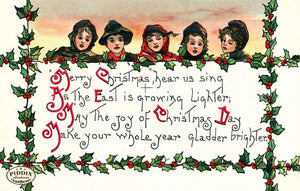 Merry Christmas, hear us sing
As the East is growing lighter;
May the joy of Christmas Day
Make your whole year gladder brighter.
PIDDIX